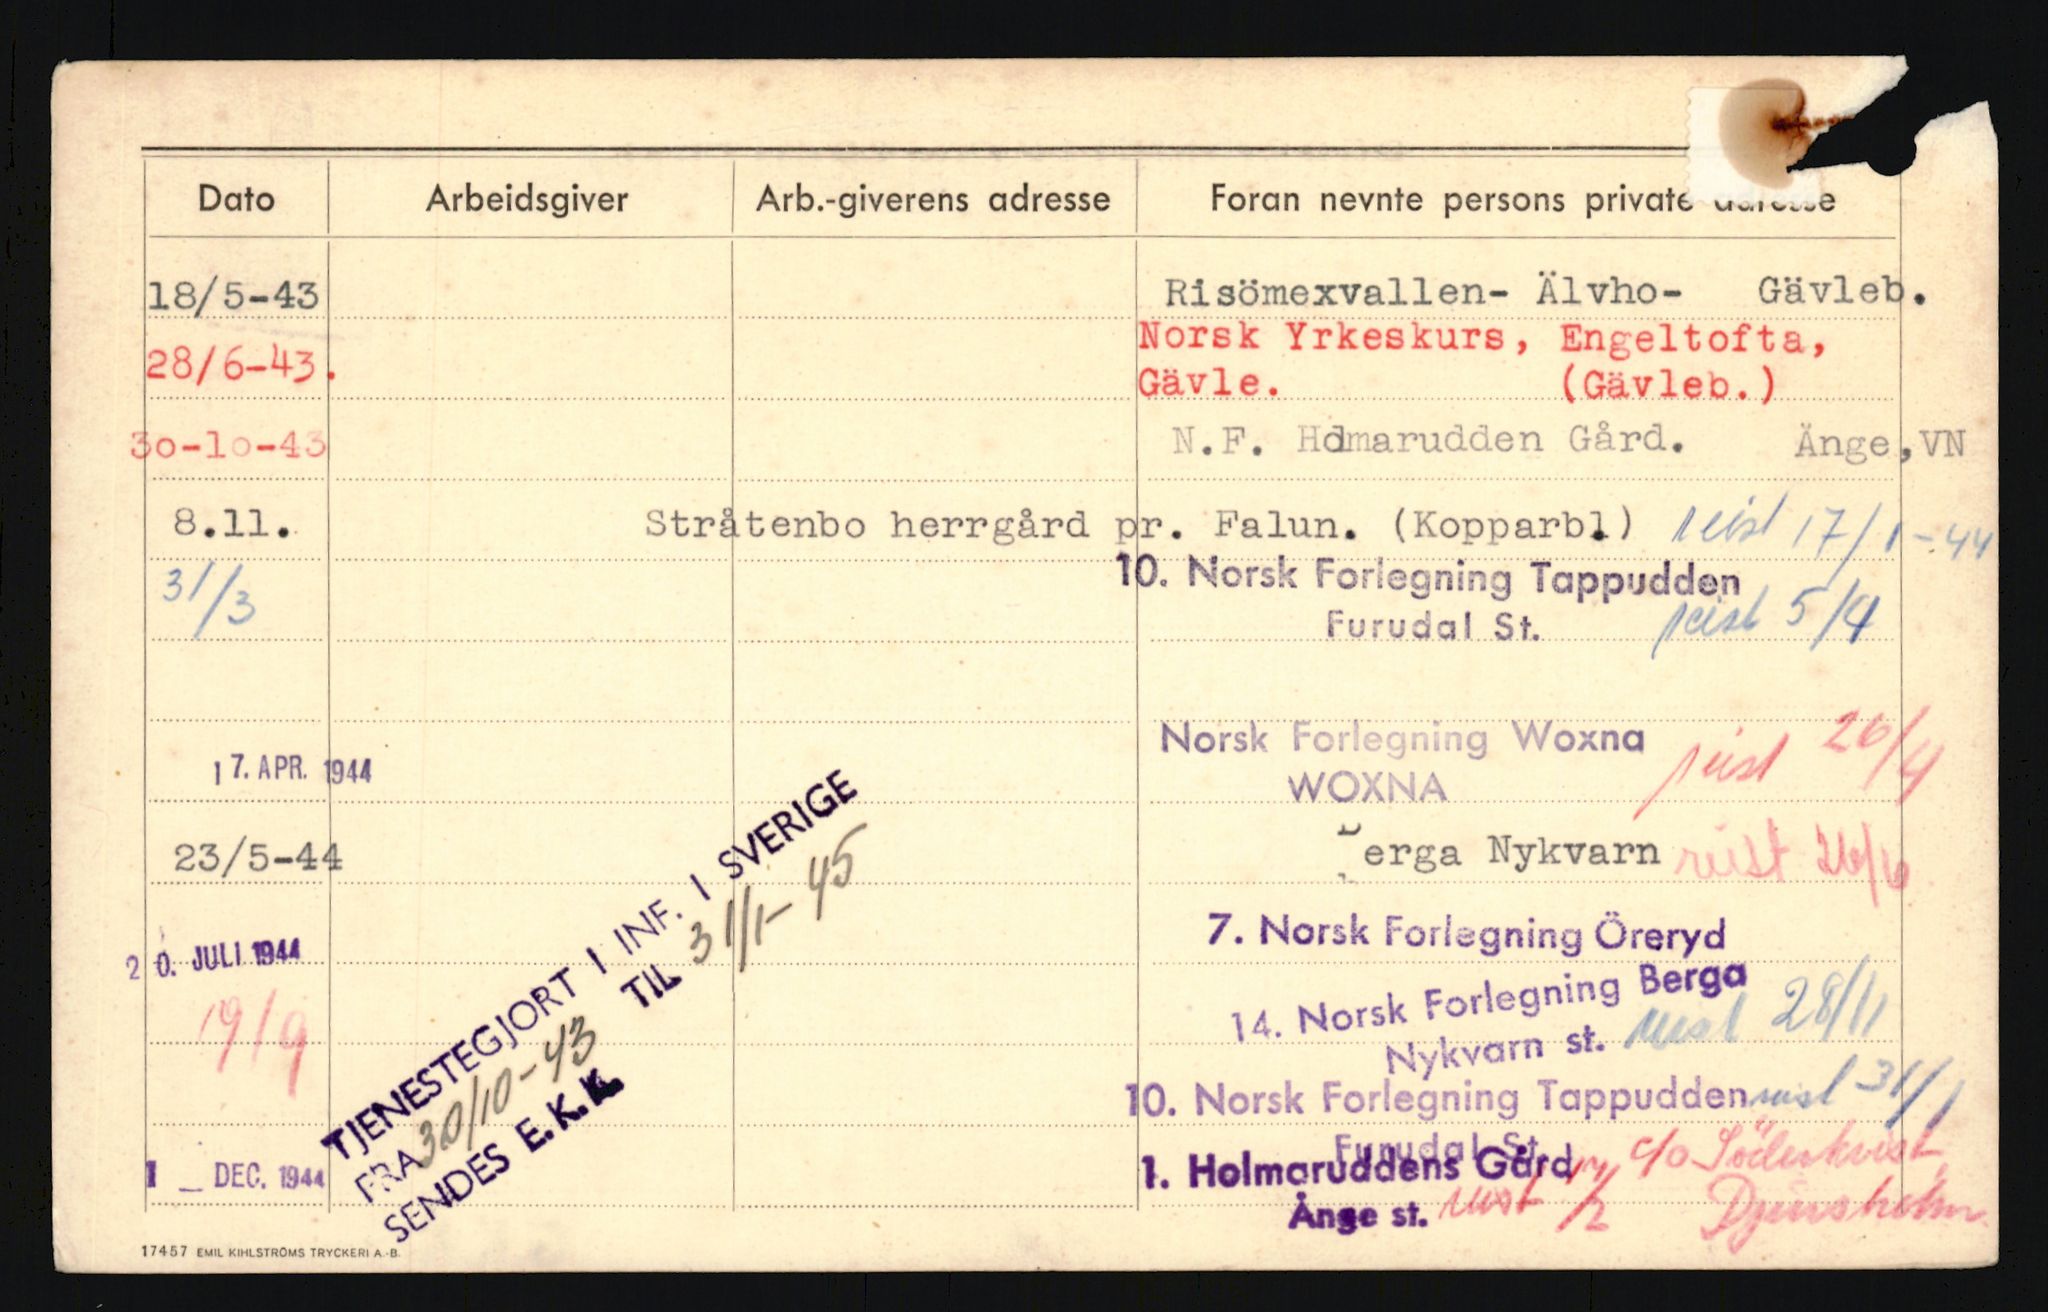 Dato Arbeidsgiver Arb.-giverens adresse Foran nevnte persons private adresse
18/5-43 Risömexvallen- Älvho- Gävleb.
28/6-43. Norsk Yrkeskurs, Engeltofta,
Gävle. (Gävleb.)
30-10-43 N.F. Holmarudden Gård. Änge, VN
8.11. Stråtenbo herrgård pr. Falun. (Kopparbl) reist 17/1-44
31/3 10. Norsk Forlegning Tappudden
Furudal St. reist 5/4
17. APR. 1944 Norsk Forlegning Woxna reist 26/4
WOXNA
23/5-44 Berga Nykvarn reist 26/6
20. JULI 1944 7. Norsk Forlegning Öreryd
19/9 14. Norsk Forlegning Berga
Nykvarn st. reist 28/11
10. Norsk Forlegning Tappudden reist 31/1
Furudal St.
1 _ DEC. 1944 1. Holmaruddens Gård c/o Söderkvist
Ånge st. reist Djursholm
TJENESTEGJORT I INF. I SVERIGE
FRA 30/10-43 TIL 31/1-45
SENDES E.K.K.
17457 EMIL KIHLSTRÖMS TRYCKERI A.-B.